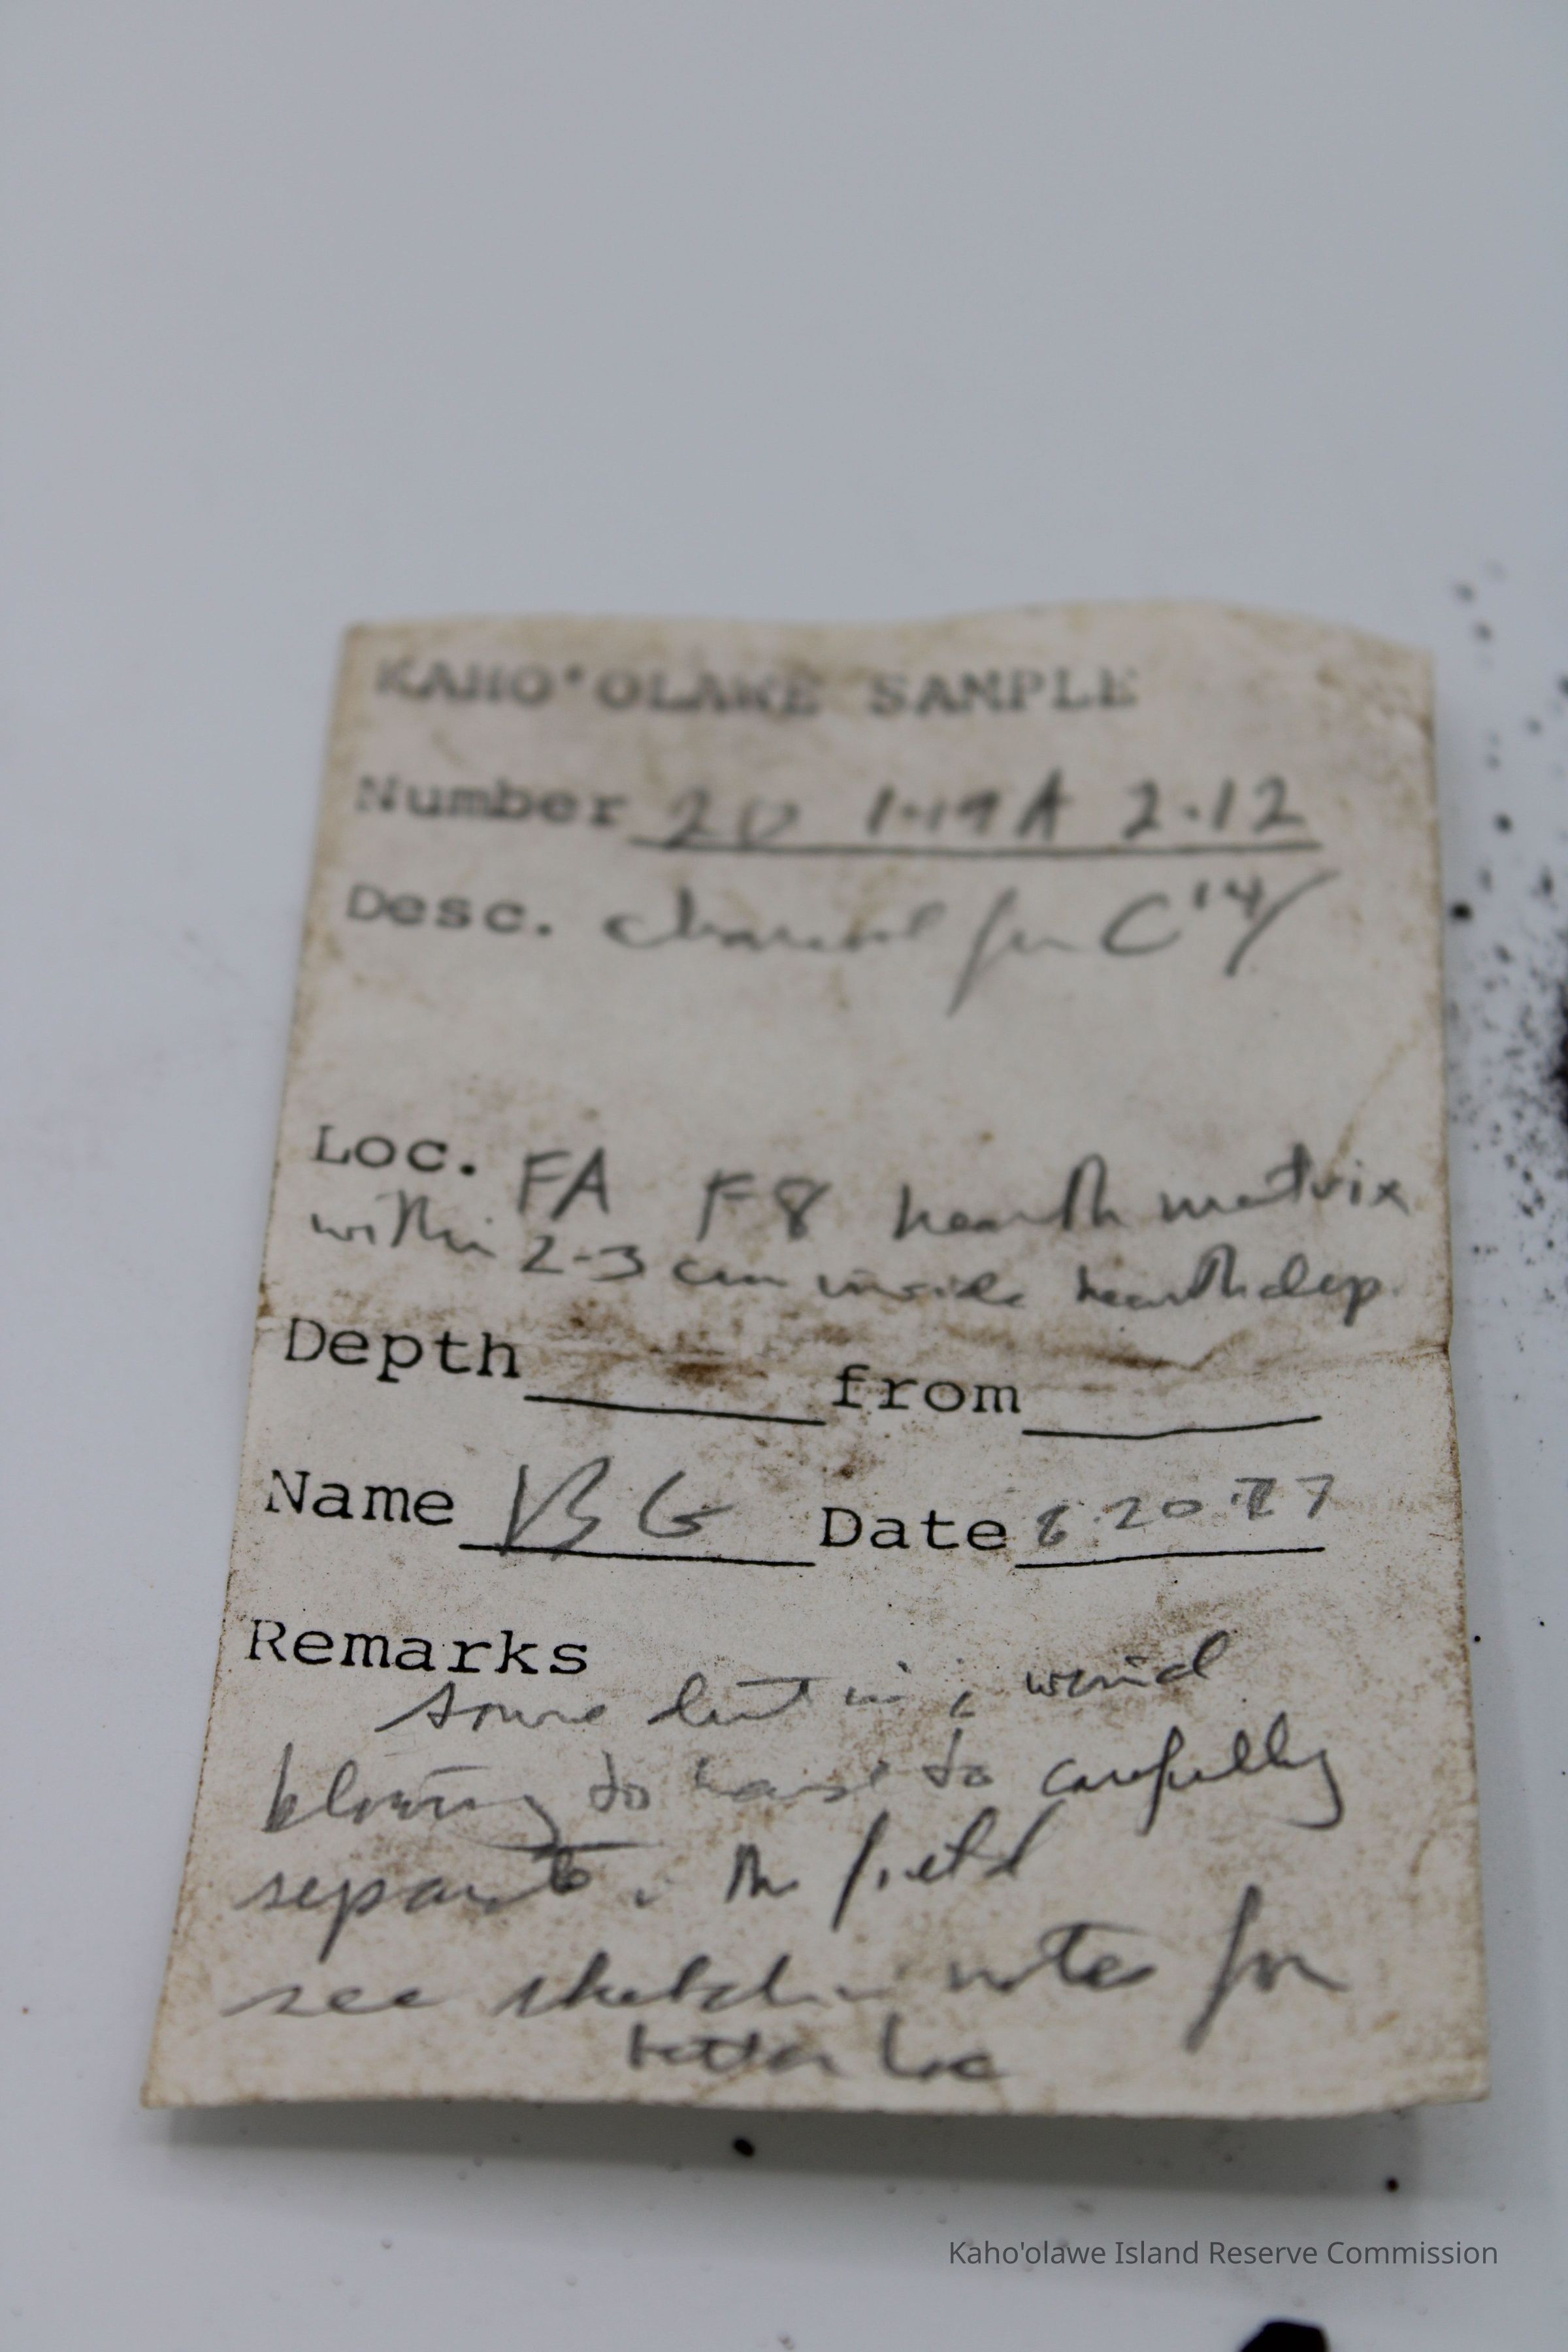 KAHO'OLAWE SAMPLE
Number 20 1-19A 2-12
Desc. charcoal for C14
Loc. FA F8 hearth matrix
within 2-3 cm inside hearth dep.
Depth from
Name BG Date 8.20.77
Remarks
some dirt in; wind
blowing to hard to carefully
separate in the field
see sketch in notes for
better loc
Kaho'olawe Island Reserve Commission